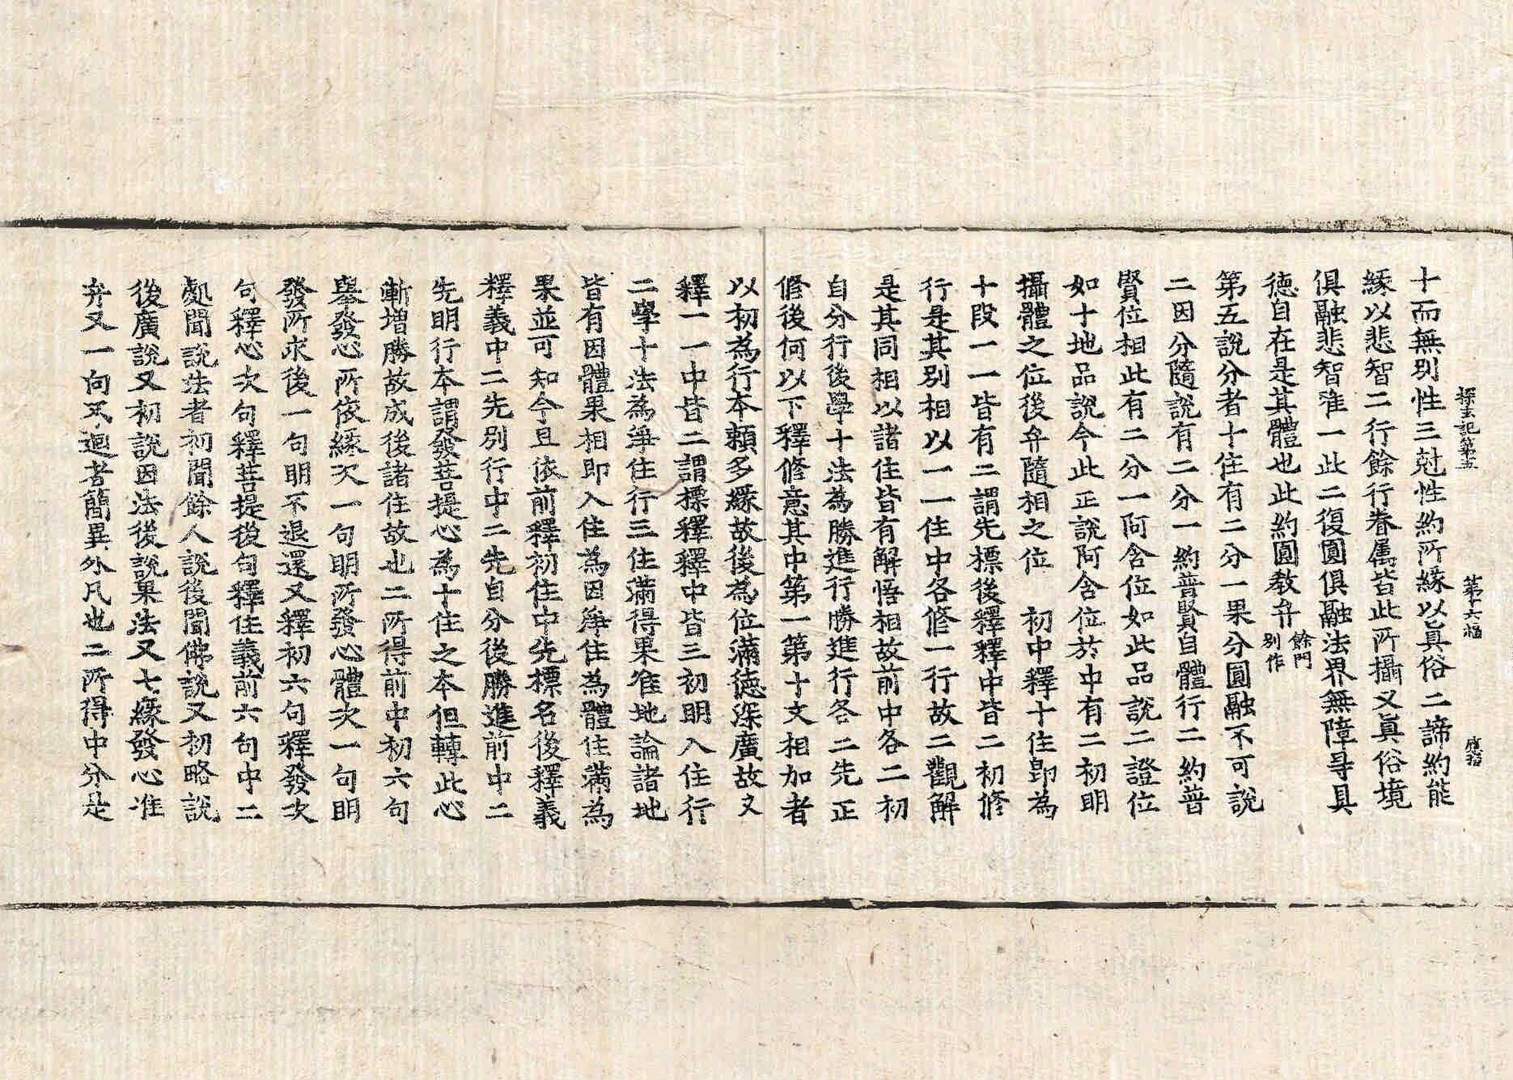 探玄記第五 第十六幅
十而無別性三尅性約所緣以眞俗二諦約能
緣以悲智二行餘行眷属皆此所攝又眞俗境
俱融悲智唯一此二復圓俱融法界無障㝵具
德自在是其體也此約圓教弁餘門別作
第五說分者十住有二分一果分圓融不可說
二因分隨說有二分一約普賢自體行二約普
賢位相此有二分一阿含位如此品說二證位
如十地品說今此正說阿含位於中有二初明
攝體之位後弁隨相之位 初中釋十住卽為
十段一一皆有二謂先標後釋釋中皆二初修
行是其別相以一一住中各修一行故二觀解
是其同相以諸住皆有解悟相故前中各二初
自分行後學十法為勝進行勝進行各二先正
修後何以下釋修意其中第一第十文相加者
以初為行本賴多緣故後為位滿德深廣故又
釋一一中皆二謂標釋釋中皆三初明入住行
二學十法為淨住行三住滿得果准地論諸地
皆有因體果相即入住為因淨住為體住滿為
果並可知今且依前釋初住中先標名後釋義
釋義中二先別行中二先自分後勝進前中二
先明行本謂發菩提心為十住之本但轉此心
漸增勝故成後諸住故也二所得前中初六句
舉發心所依緣次一句明所發心體次一句明
發所求後一句明不退還又釋初六句釋發次
句釋心次句釋菩提後句釋住義前六句中二
處聞說法者初聞餘人說後聞佛說又初略說
後廣說又初說因法後說果法又七緣發心准
弁又一向不迴者簡異外凡也二所得中分是